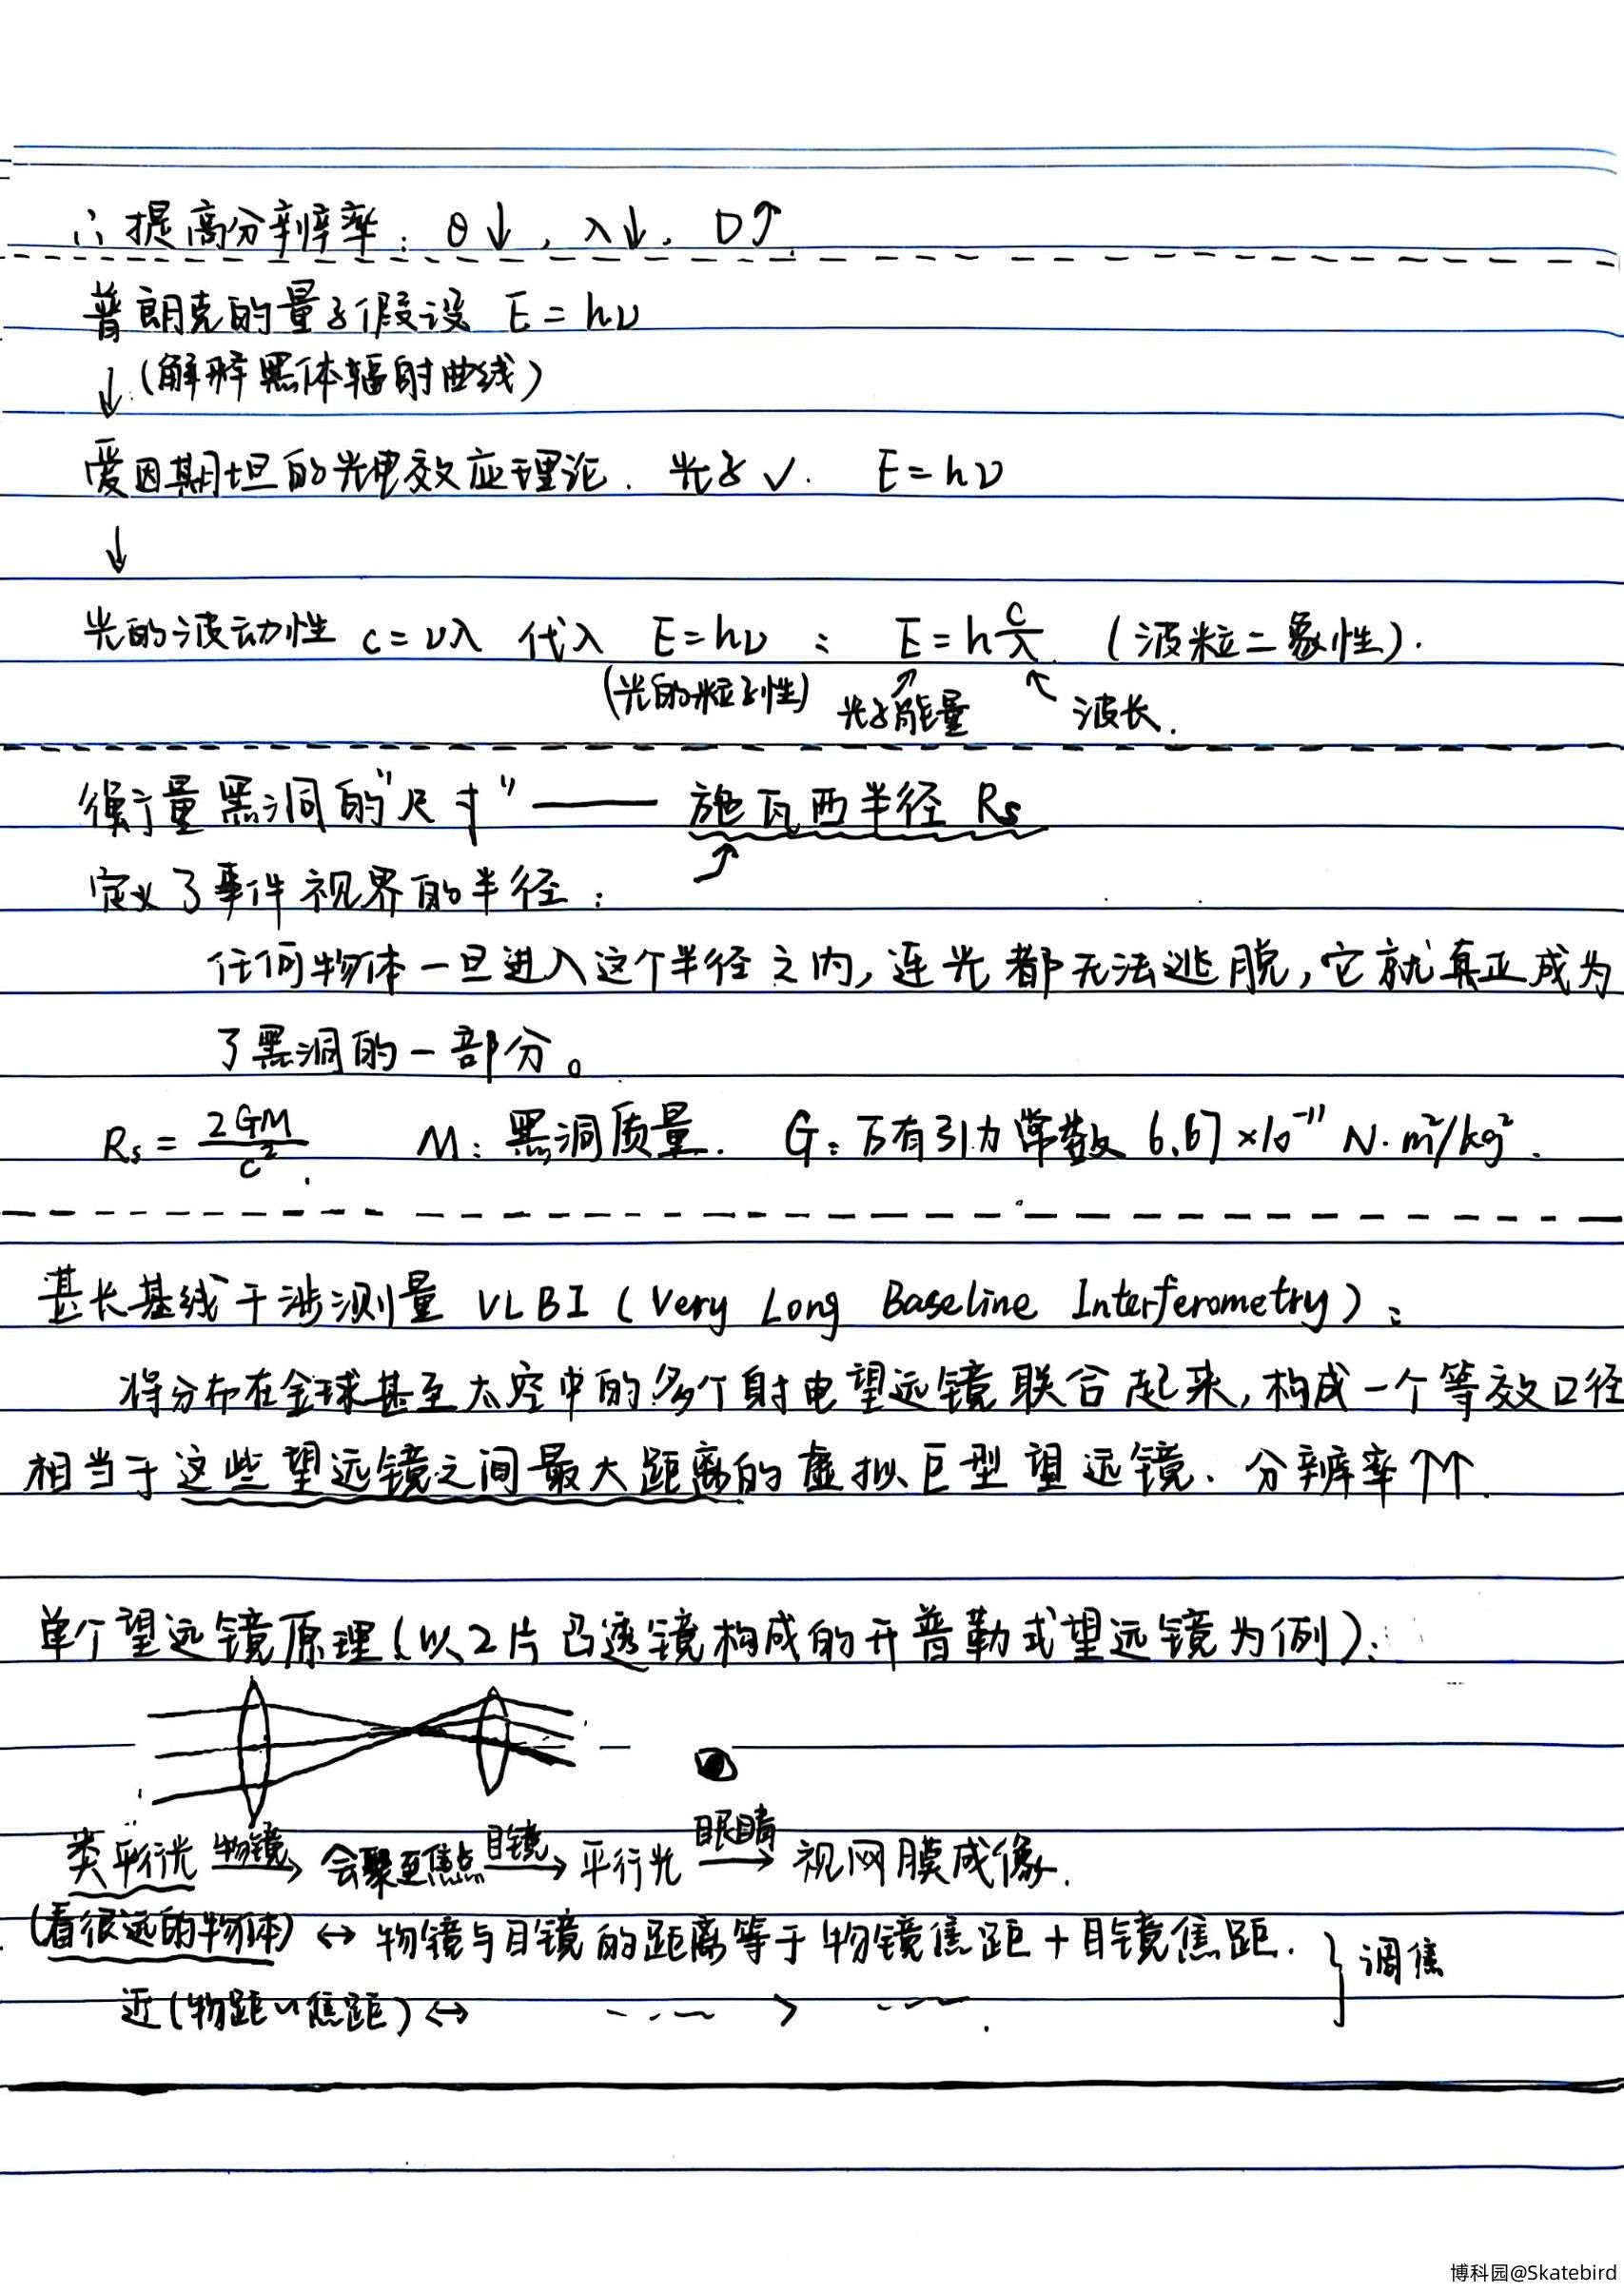 ∴ 提高分辨率：θ↓，λ↓，D↑
普朗克的量子假设 E=hν
↓（解释黑体辐射曲线）
爱因斯坦的光电效应理论．光子✓． E=hν
↓
光的波动性 c=νλ 代入 E=hν： E=h c/λ （波粒二象性）．
（光的粒子性） 光子能量 波长．
衡量黑洞的"尺寸"—— 施瓦西半径 Rs
定义了事件视界的半径：
任何物体一旦进入这个半径之内，连光都无法逃脱，它就真正成为
了黑洞的一部分。
Rs = 2GM/c² ． M：黑洞质量． G：万有引力常数 6.67×10⁻¹¹ N·m²/kg²．
甚长基线干涉测量 VLBI（Very Long Baseline Interferometry）：
将分布在全球甚至太空中的多个射电望远镜联合起来，构成一个等效口径
相当于这些望远镜之间最大距离的虚拟巨型望远镜．分辨率↑↑．
单个望远镜原理（以2片凸透镜构成的开普勒式望远镜为例）：
类平行光 物镜→ 会聚至焦点 目镜→ 平行光 眼睛→ 视网膜成像．
（看很远的物体）↔ 物镜与目镜的距离等于物镜焦距+目镜焦距．} 调焦
近（物距∽焦距）↔ -.-- > ---．
博科园@Skatebird